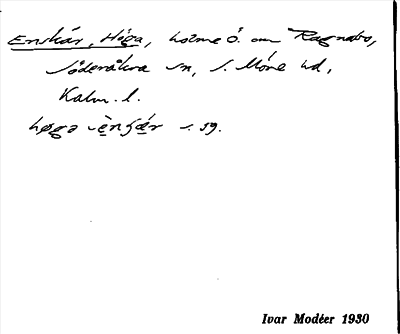 Enskär, Höga, holme Ö. om Ragnabo,
Söderåkra sn, S. Möre hd,
Kalm. l.
høgə s. 59.
Ivar Modéer 1930